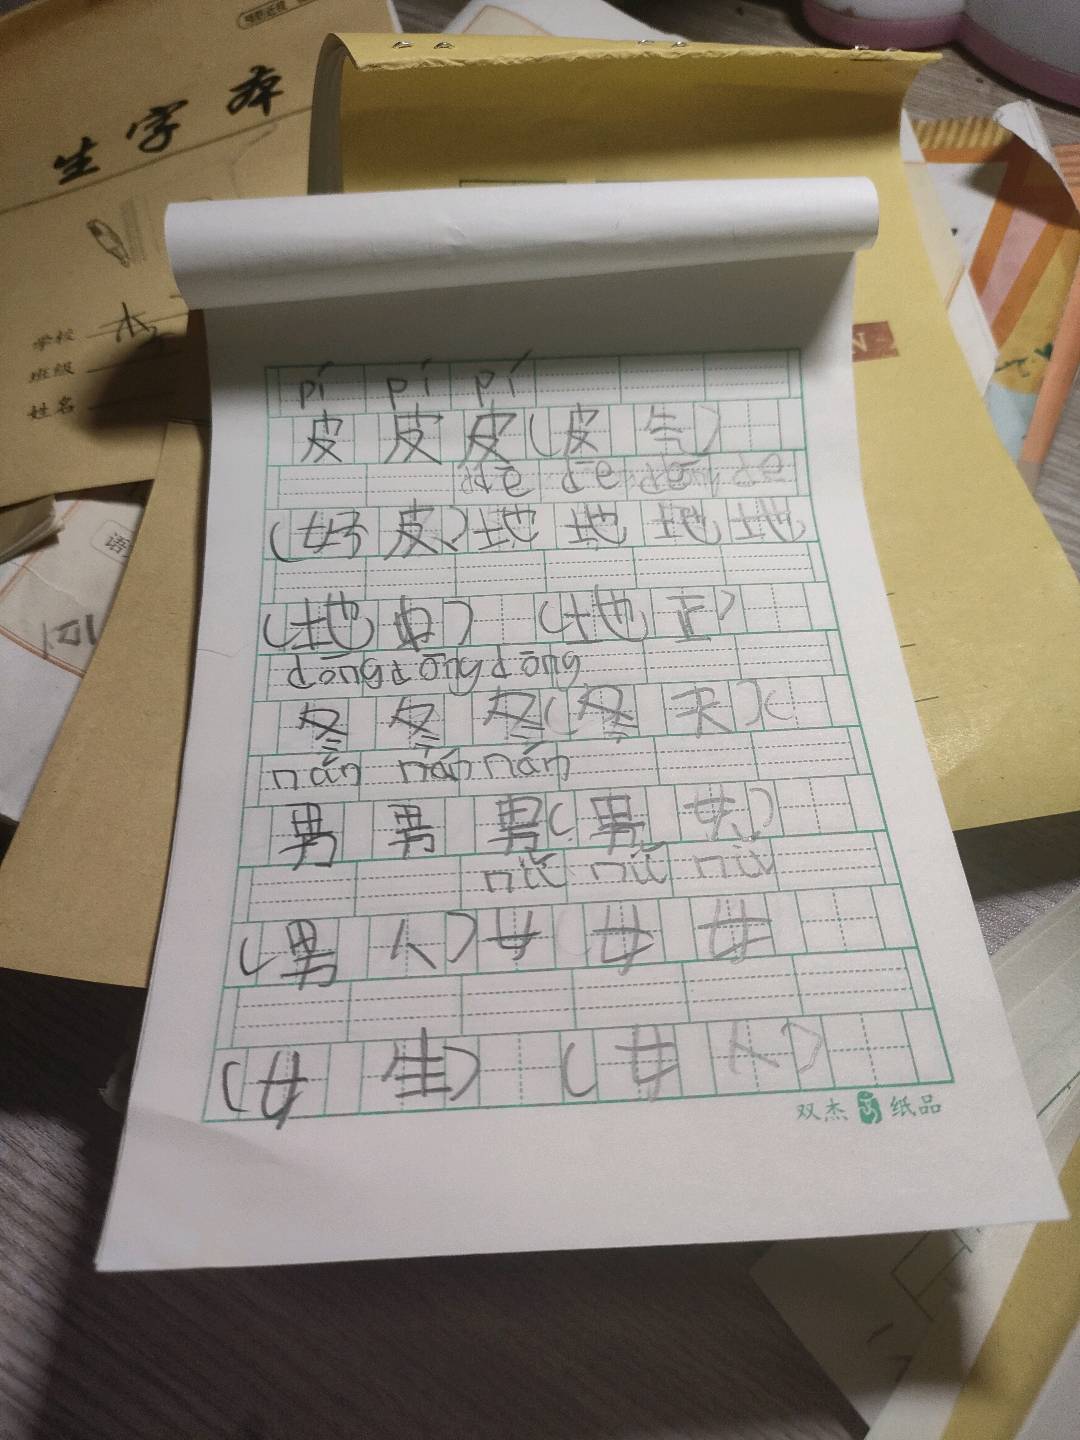 生字本
学校
班级
姓名
语
pí pí pí
皮 皮 皮（皮 气）
（好 皮）地 地 地 地
（地 ）（地 正）
dōng dōng dōng
冬 冬 冬（冬 天）（
nán nán nán
男 男 男（男 女）
nǚ nǚ nǚ
（男 人）女（女 女
（女 生）（女 人）
双杰 纸品